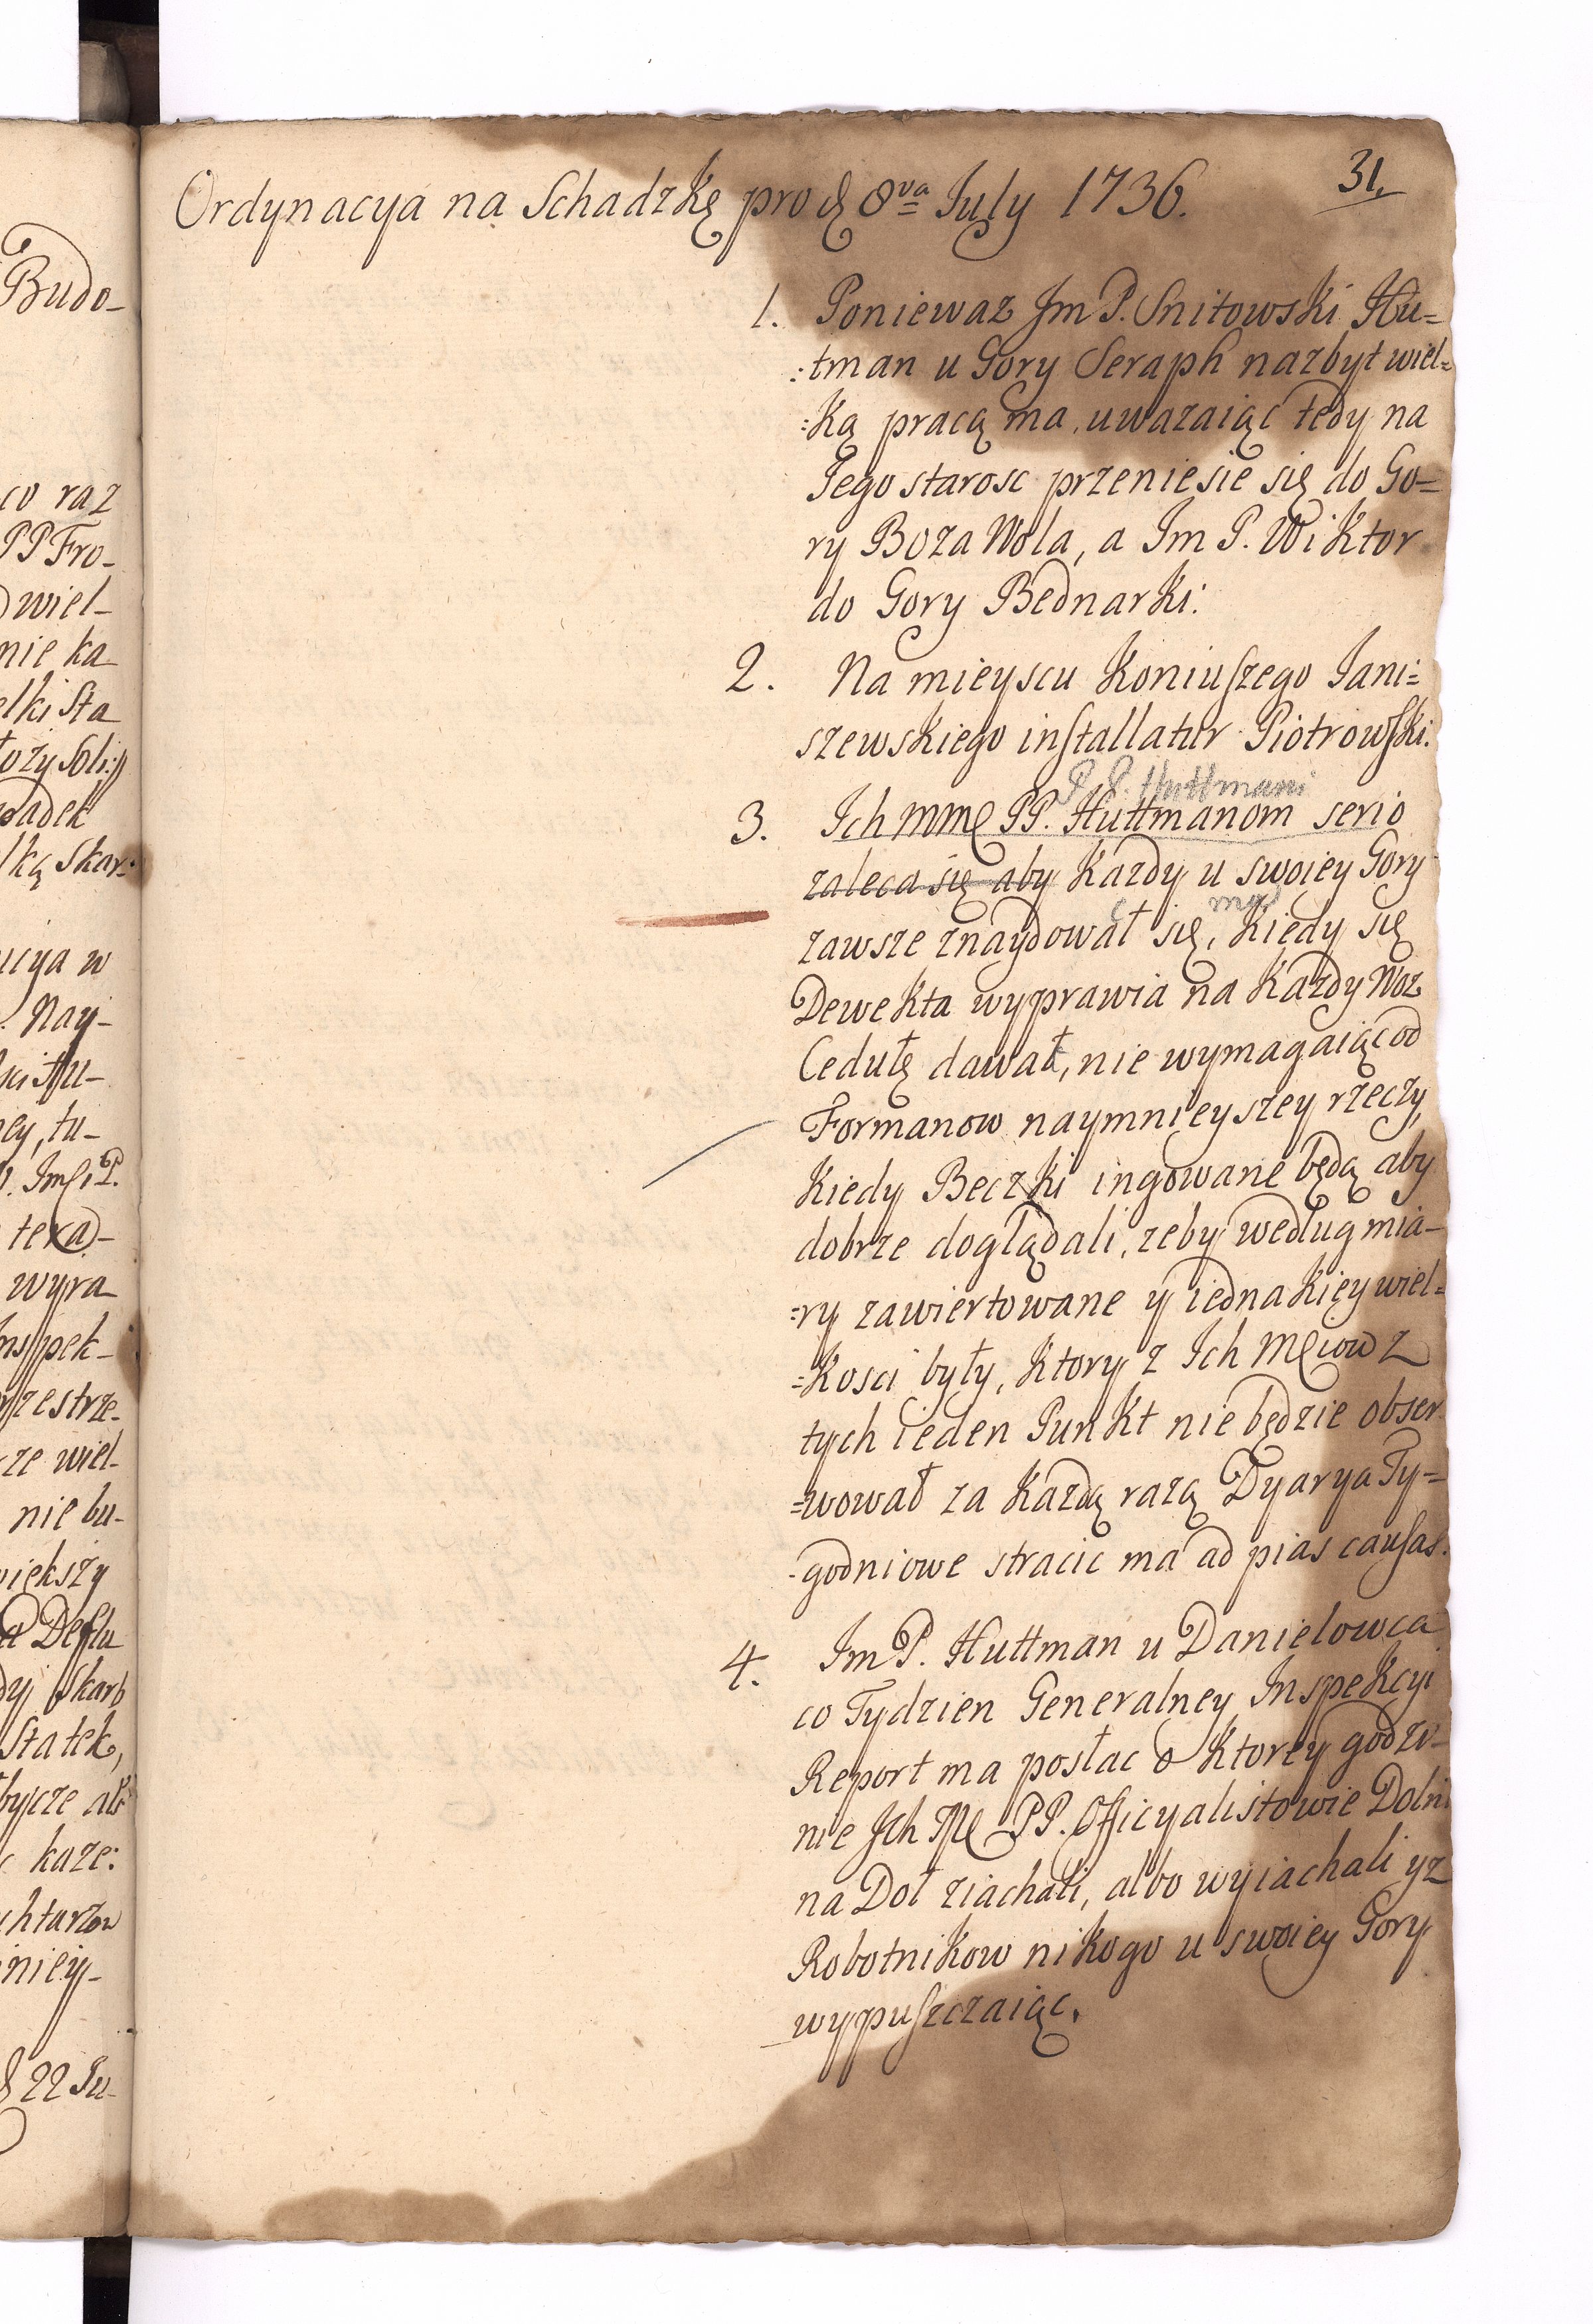 31.
Ordynacya na Schadzkę pro d 8va July 1736.
1. Poniewaz Jm P. Snitowski Hu=
:tman u Gory Seraph nazbyt wiel=
:ką pracą ma, uwazaiąc tedy na
Jego starosc przeniesie się do Go=
ry Boza Wola, a Jm P. Wiktor
do Gory Bednarki:
2. Na mieyscu Koniuszego Jani=
szewskiego installatur Piotrowski.
P P. Huttmani
3. Ich mme PP. Huttmanom serio
zaleca się aby Kazdy u swoiey Gory
ma
zawsze znaydował się, Kiedy się
Dewekta wyprawia na Kazdy Woz
Cedułę dawał, nie wymagaiąc od
Formanow naymnieyszey rzeczy,
Kiedy Beczki ingowane będą aby
dobrze doglądali, zeby według mia-
=ry zawiertowane y iednakiey wiel=
=kosci były, Ktory z Ich Mciow z
tych ieden Punkt nie będzie obser
=wował za Kazdą razą Dyarya Ty=
-godniowe stracic ma ad pias causas.
4. Jm P. Huttman u Danielowca
co Tydzien Generalney Inspekcyi
Report ma posłac o Ktorey godzi-
nie Jch M PP. Officyalistowie Dolni
na Doł ziachali, albo wyiachali y z
Robotnikow nikogo u swoiey Gory
wypuszczaiąc.
Budo-
co raz
PP Fro-
wiel-
nie ka
elki Sta
ozy Soli
padek
lką Skar:
ucya w
. Nay-
ey, tu-
wyra
nspek-
rzestrze-
ze wiel-
nie bu-
większy
a Deflu
dy Skarb
Statek,
kaze:
niey-
22 Ju-